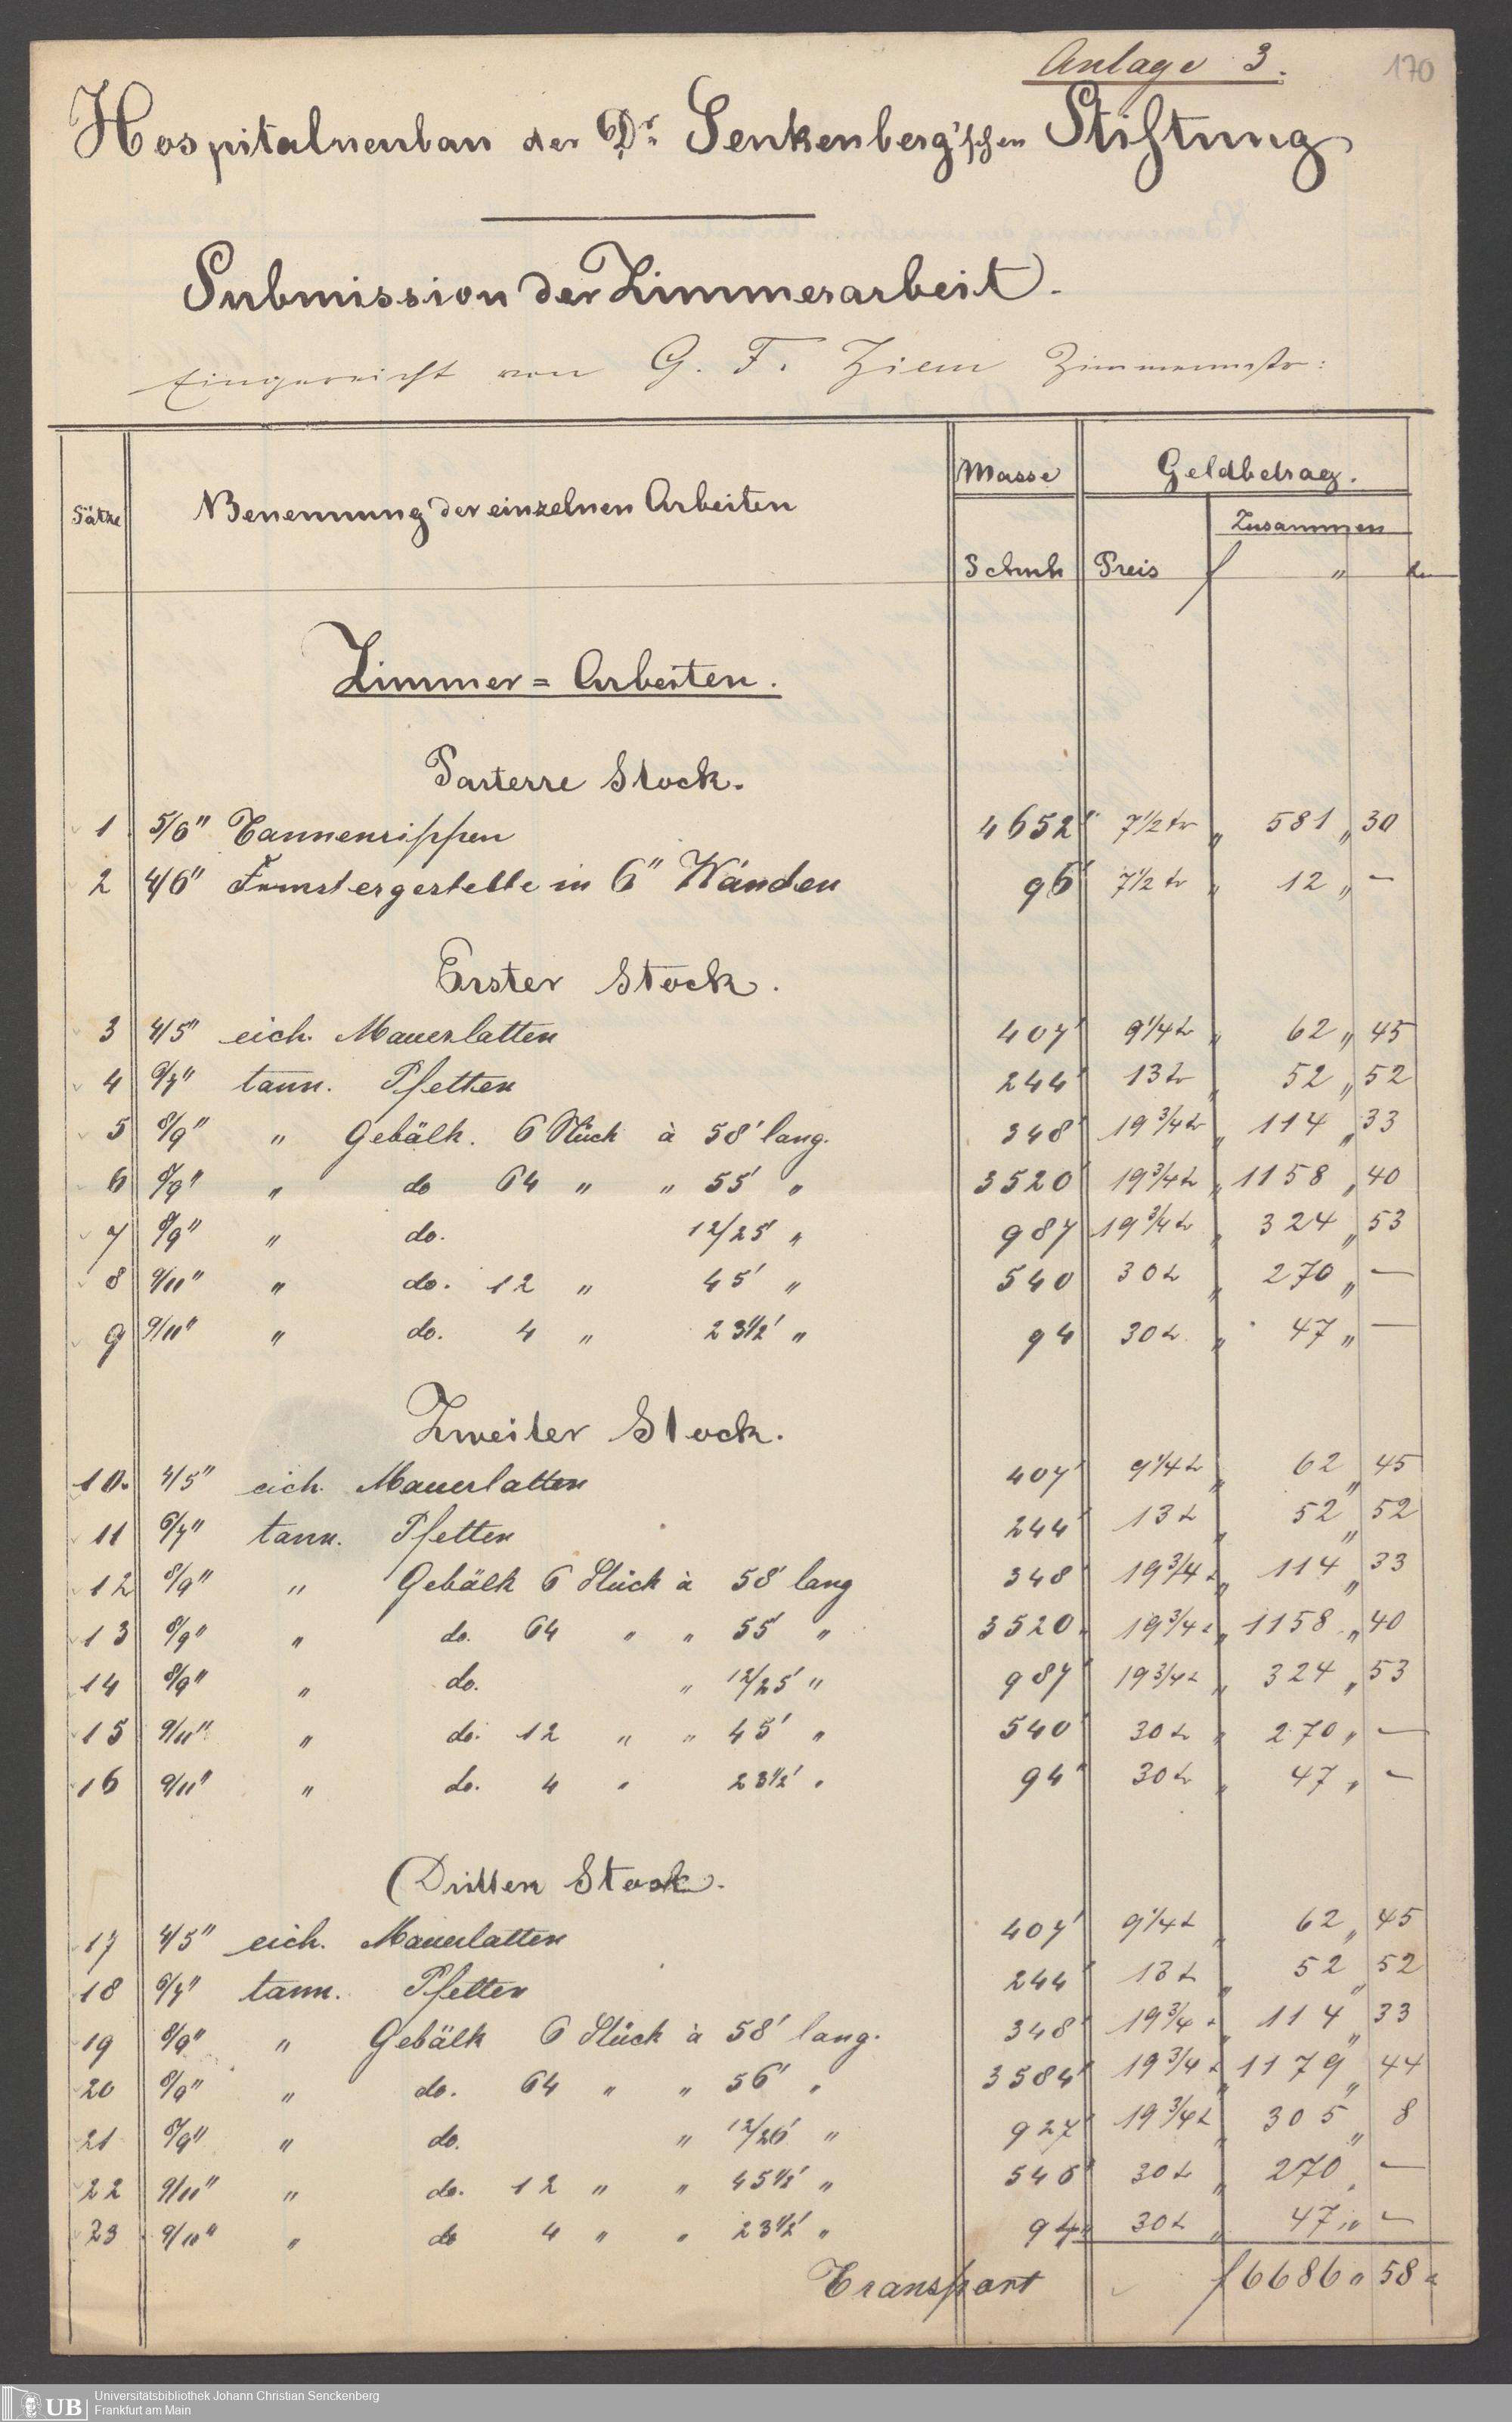 Anlage 3.
170
Hospitalneubau der Dr. Senkenberg'schen Stiftung
Submission der Zimmerarbeit.
Eingereicht von G. F. Ziem Zimmermstr:
Sätze Benennung der einzelnen Arbeiten Masse Geldbetrag.
Zusammen
Schuh Preis f " kr
Zimmer=Arbeiten.
Parterre Stock.
1 5/6" Tannenrippen 4652' 7 1/2 kr " 581 " 30
2 4/6" Fenstergestelle in 6" Wänden 96' 7 1/2 kr " 12 " —
Erster Stock.
3 4/5" eich. Mauerlatten 407' 9 1/4 kr " 62 " 45
4 6/7" tann. Pfetten 244' 13 kr " 52 " 52
5 8/9" " Gebälk. 6 Stück à 58' lang. 348' 19 3/4 kr " 114 " 33
6 8/9" " do 64 " " 55' " 3520' 19 3/4 kr " 1158 " 40
7 8/9" " do. 12/25' " 987 19 3/4 kr " 324 " 53
8 9/11" " do. 12 " 45' " 540 30 kr " 270 " —
9 9/11" " do. 4 " 23 1/2' " 94 30 kr " 47 " —
Zweiter Stock.
10. 4/5" eich. Mauerlatten 407' 9 1/4 kr " 62 " 45
11 6/7" tann. Pfetten 244' 13 kr " 52 " 52
12 8/9" " Gebälk 6 Stück à 58' lang 348' 19 3/4 kr " 114 " 33
13 8/9" " do. 64 " " 55' " 3520' 19 3/4 kr " 1158 " 40
14 8/9" " do. " 12/25' " 987' 19 3/4 kr " 324 " 53
15 9/11" " do. 12 " " 45' " 540' 30 kr " 270 " —
16 9/11" " do. 4 " 23 1/2' " 94' 30 kr " 47 " —
Dritter Stock.
17 4/5" eich. Mauerlatten 407' 9 1/4 kr " 62 " 45
18 6/7" tann. Pfetten 244' 13 kr " 52 " 52
19 8/9" " Gebälk 6 Stück à 58' lang. 348' 19 3/4 kr " 114 " 33
20 8/9" " do. 64 " " 56' " 3584' 19 3/4 kr " 1179 " 44
21 8/9" " do. " 12/26' " 927' 19 3/4 kr " 305 " 8
22 9/11" " do. 12 " " 45 1/2' " 546' 30 kr " 270 " —
23 9/11" " do 4 " " 23 1/2' " 94' 30 kr " 47 " —
Transport f 6686 " 58 "
UB
Universitätsbibliothek Johann Christian Senckenberg
Frankfurt am Main